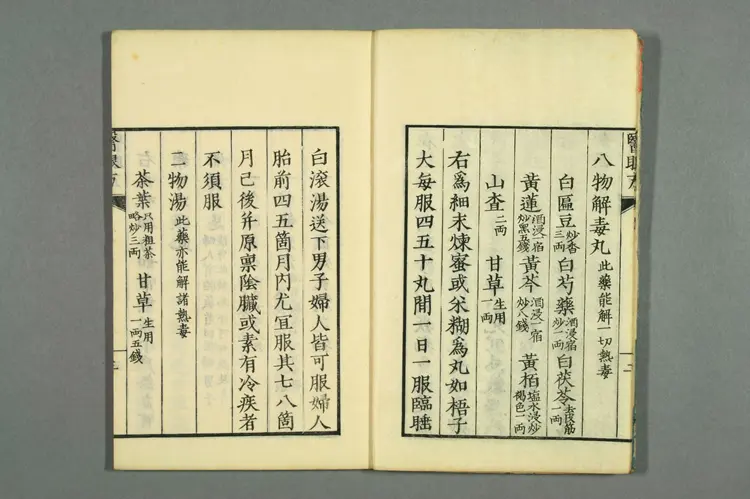 八物解毒丸此藥能解一切熱毒
白匾豆炒香三両白芍藥酒浸一宿炒一両白茯苓去皮筋一両
黄蓮酒浸一宿炒黑五錢黄芩酒浸一宿炒八錢黄栢塩水浸炒褐色一両
山査二両甘草生用一両
右爲細末煉蜜或米糊爲丸如梧子
大每服四五十丸間一日一服臨睡
白滚湯送下男子婦人皆可服婦人
胎前四五箇月内尤宜服其七八箇
月已後并原禀陰臟或素有冷疾者
不須服
二物湯此藥亦能解諸熱毒
茶葉只用粗茶略炒三両甘草生用一両五錢